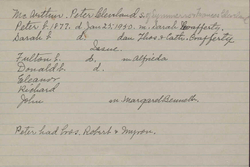 McArthur, Peter Cleveland s.
Peter b. 1877. d Jan 25. 1940. m. Sarah
Sarah b. d. dau Thos & Cath.
Issue.
Fulton b. d. m Alfreda
Donald b. d.
Eleanor
Richard
John m Margaret Bennett
Peter had bros. Robert & Myron.